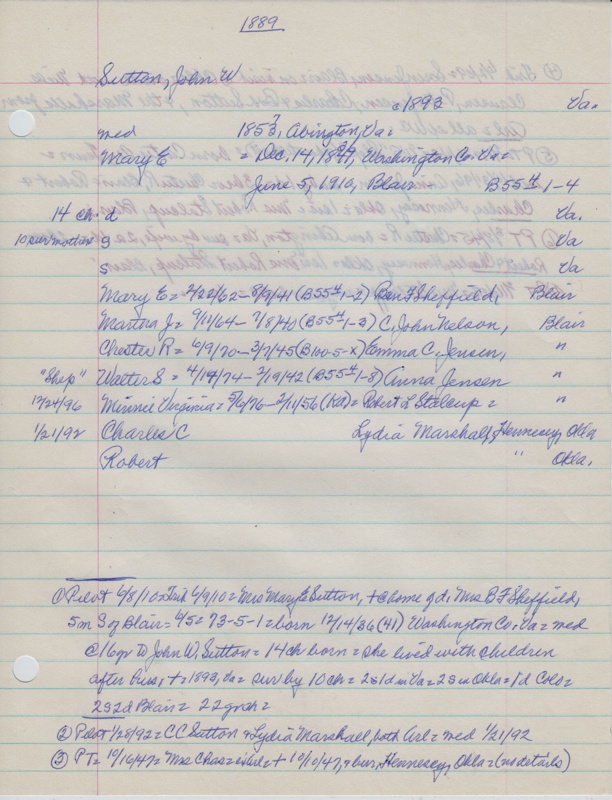 1889
Sutton, John W
c1893 Va.
med 1853, Abington, Va.
Mary E = Dec. 14, 1841, Washington Co. Va.=
June 5, 1910, Blair B55# 1-4
14 ch: d Va.
10 surv mother 9 Va
S Va
Mary E = 2/22/62-8/9/41 (B55#1-2) Benj Sheffield, Blair
Martha J = 9/11/64-7/8/40 (B55#1-3) C. John Nelson, Blair
Chester R = 6/9/70-3/7/45 (B100-5-x) Emma C. Jensen, "
"Shep" Walter S = 4/14/74-2/19/42 (B55#1-8) Anna Jensen "
12/24/96 Minnie Virginia = 5/6/76-2/11/56 (Ka) = Robert L Stalcup = "
1/21/92 Charles C Lydia Marshall, Hennesey, Okla
Robert " Okla.
① Pilot 6/8/10 = 6/9/10 = Mrs Mary E Sutton, + @ home of d, Mrs B F Sheffield,
5 m S of Blair = 6/5 = 73-5-1 = born 12/14/36 (41) Washington Co. Va = med
@ 16 yr to John W. Sutton = 14 ch born = she lived with children
after hus, + = 1893, Va = surv by 10 ch = 2s 1d in Va = 2s in Okla = 1d Colo =
2s 2d Blair = 22 grch =
② Pilot 1/28/92 = C C Sutton & Lydia Marshall, both Arl = med 1/21/92
③ PT = 10/16/47 = Mrs Chas = + 10/10/47, + bur, Hennesey, Okla = (no details)